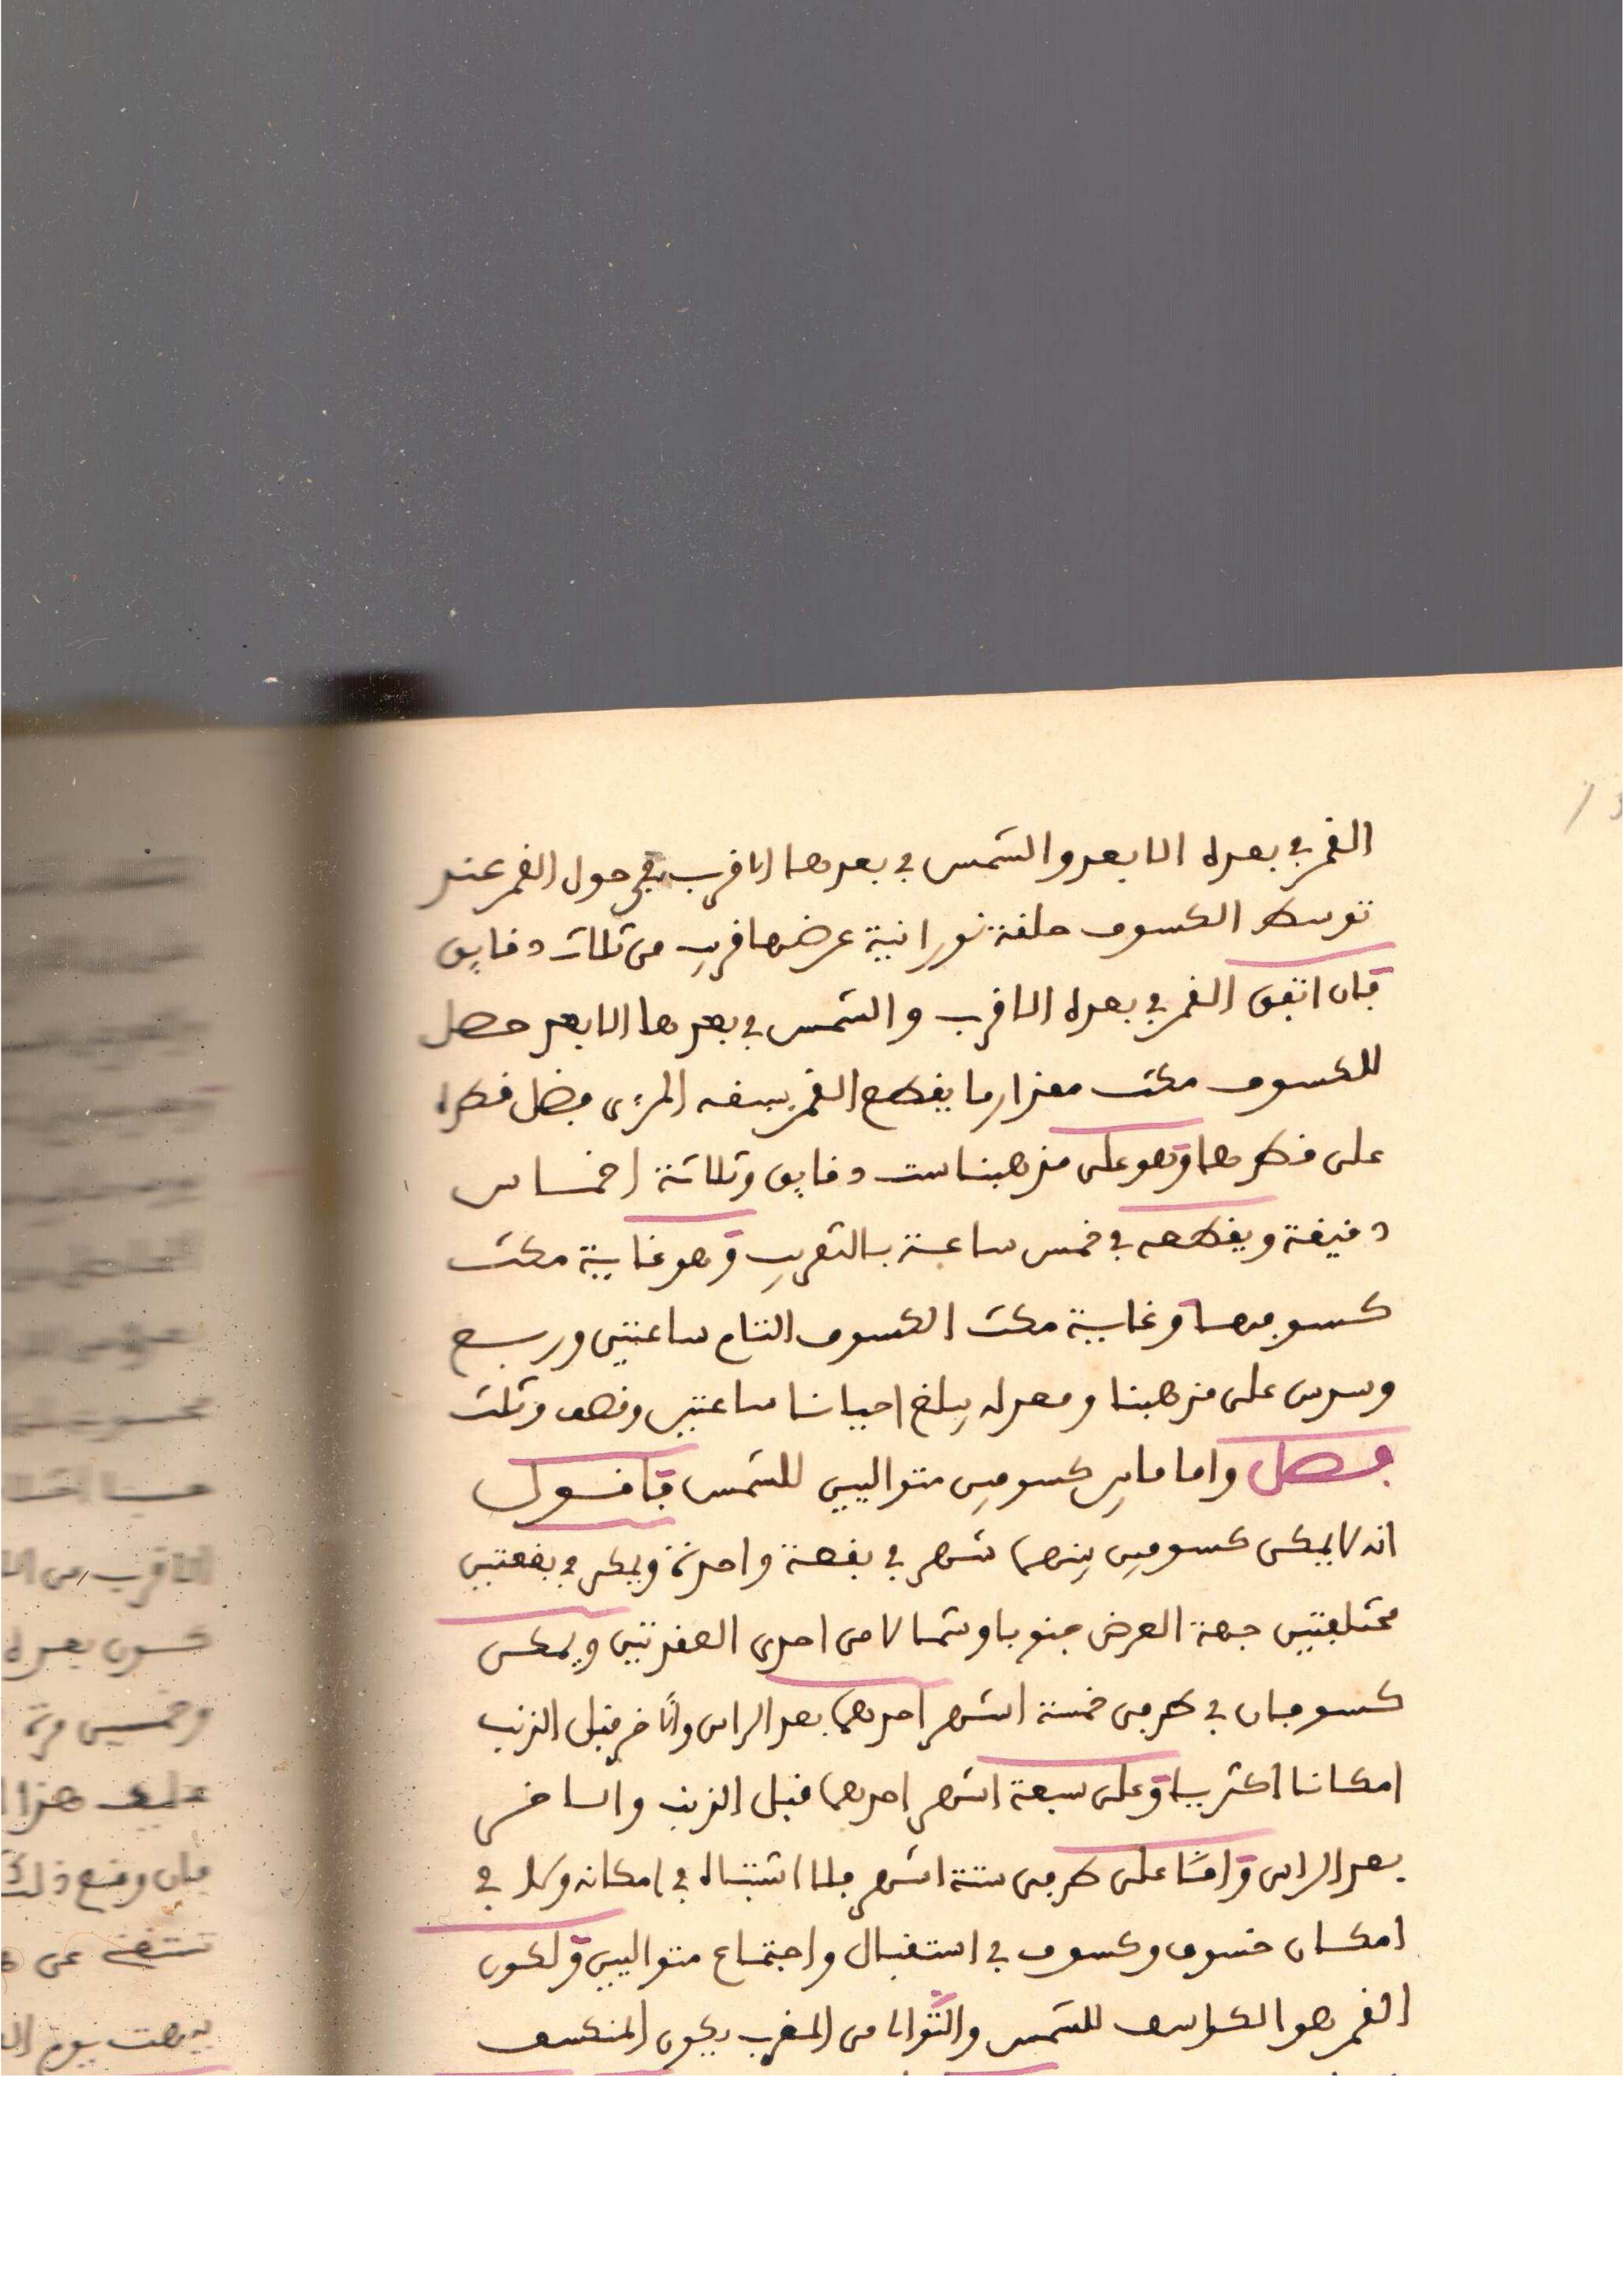 القمر في بعده الابعد والشمس في بعدها الاقرب بقي حول القمر عند
توسط الكسوف حلقة نورانية عرضها قريب من ثلاث دقايق
فان اتفق القمر في بعده الاقرب والشمس في بعدها الابعد حصل
للكسوف مكث مقدار ما يقطع القمر بسيره المرءى فضل قطره
على قطرها وهو على مذهبنا ست دقايق وثلاثة اخماس
دقيقة ويقطعه في خمس ساعة بالتقريب وهو غاية مكث
كسوفها وغاية مكث الكسوف التام ساعتين وربع
وسدس على مذهبنا ومعدله يبلغ احيانا ساعتين ونصف وثلث
فصل واما ما بين كسوفين متواليين للشمس فاقول
انه لا يمكن كسوفين بينهما شهر في بقعة واحدة ويمكن في بقعتين
مختلفتين جهة العرض جنوبا وشمالا من احدى العقدتين ويمكن
كسوفان في طرفي خمسة اشهر احدهما بعد الراس والآخر قبل الذنب
امكانا اكثريا وعلى سبعة اشهر احدهما قبل الذنب والاخر
بعد الراس وامّا على طرفي ستة اشهر فلا اشتباه في امكانه ولا في
امكان خسوف وكسوف في استقبال واجتماع متواليين ولكون
القمر هو الكاسف للشمس والتّوالا من المغرب يكون المنكسف
الاقرب من
بعده
وخمسين مرة
عليه هذا
فان وقع ذلك
عن
يوم